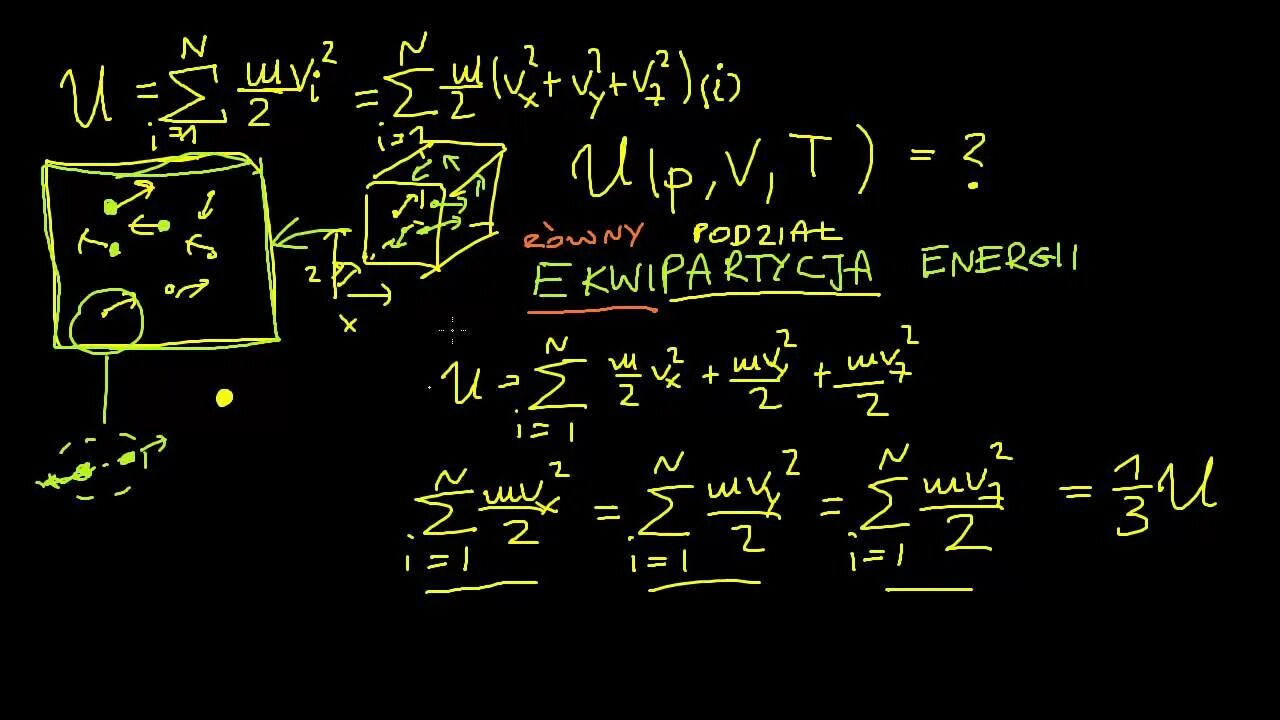 U = \sum_{i=1}^{N} \frac{m}{2} v_i^2 = \sum_{i=1}^{N} \frac{m}{2} (v_x^2 + v_y^2 + v_z^2)(i)
U(p, V, T) = ?
RÓWNY PODZIAŁ
EKWIPARTYCJA ENERGII
z
x
U = \sum_{i=1}^{N} \frac{m}{2} v_x^2 + \frac{mv_y^2}{2} + \frac{mv_z^2}{2}
\sum_{i=1}^{N} \frac{mv_x^2}{2} = \sum_{i=1}^{N} \frac{mv_y^2}{2} = \sum_{i=1}^{N} \frac{mv_z^2}{2} = \frac{1}{3} U